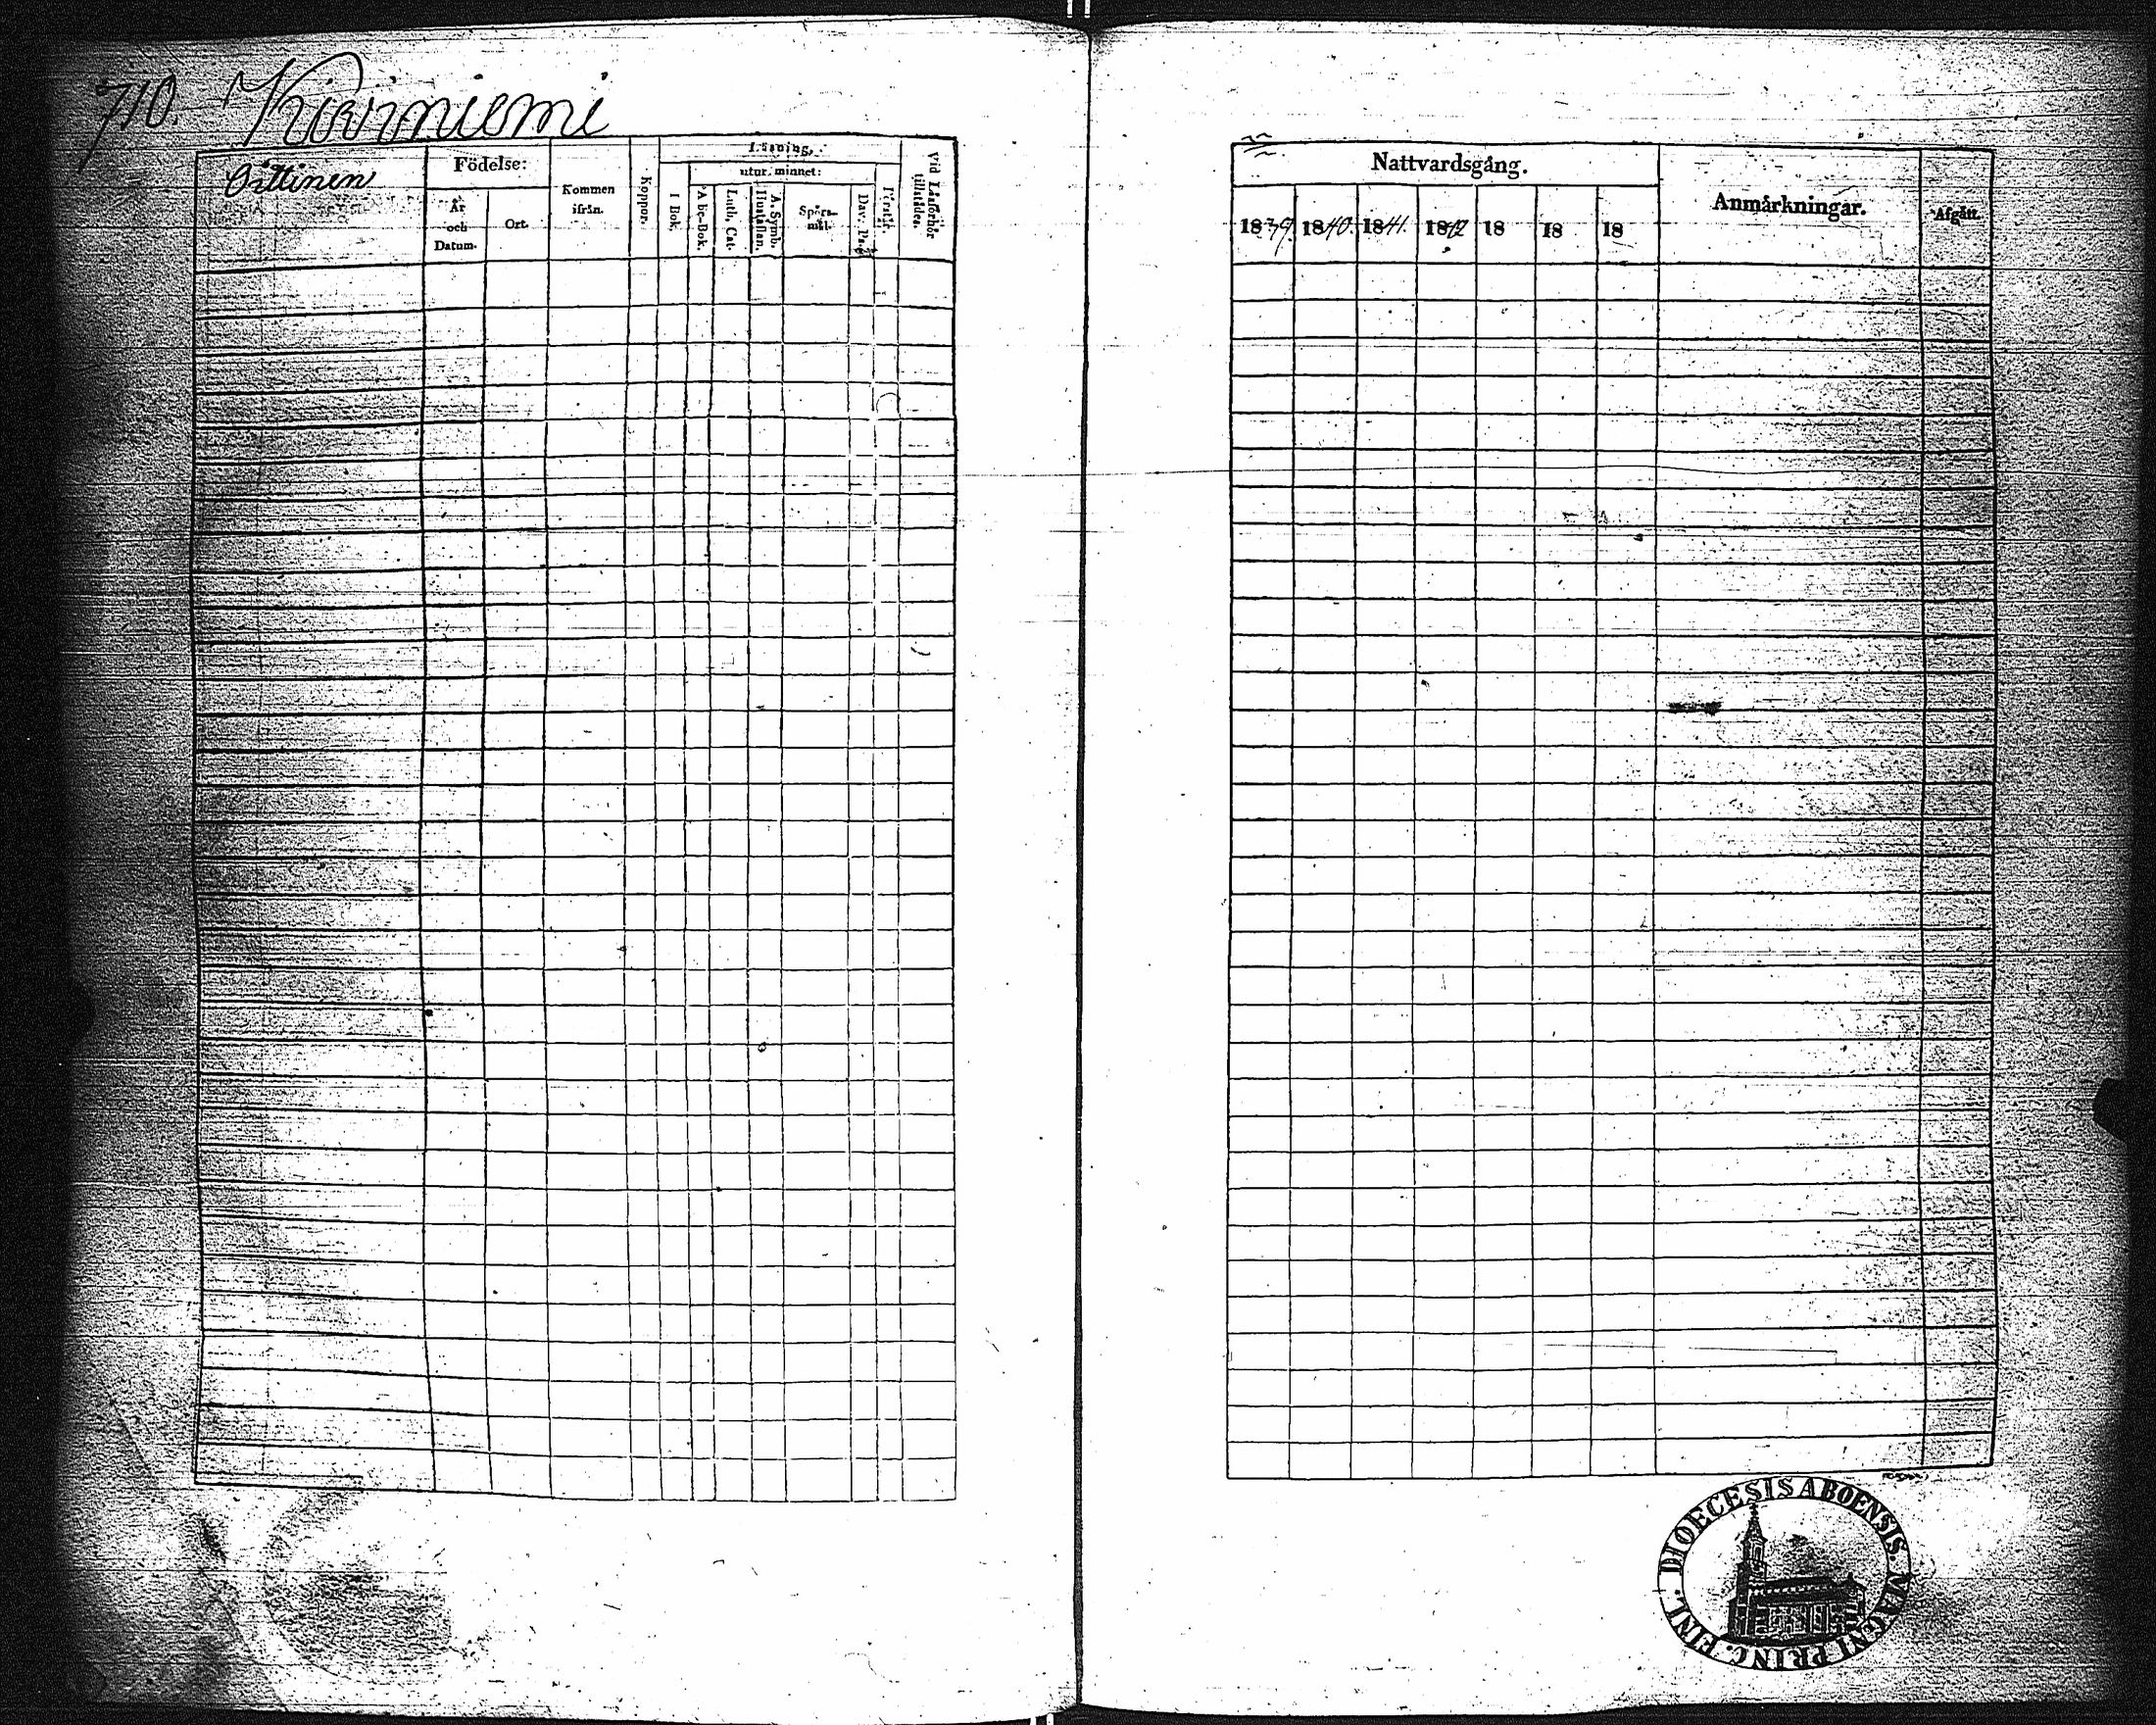 710. Kiviniemi
Oittinen
Födelse:
År
och
Datum.
Ort.
Kommen
ifrån.
Koppor.
Läsning,
utur minnet:
I Bok.
A be-Bok.
Luth. Cat.
A. Symb.
Hustaflan.
Spörs-
mål.
Dav. Ps.
Förstår.
Vid Läsförhör
tillstädes.
Nattvardsgång.
1839. 1840. 1841. 1842 18 18 18
Anmärkningar.
Afgått.
DIOECESIS ABOENSIS. MAGNI PRINC. FINL.